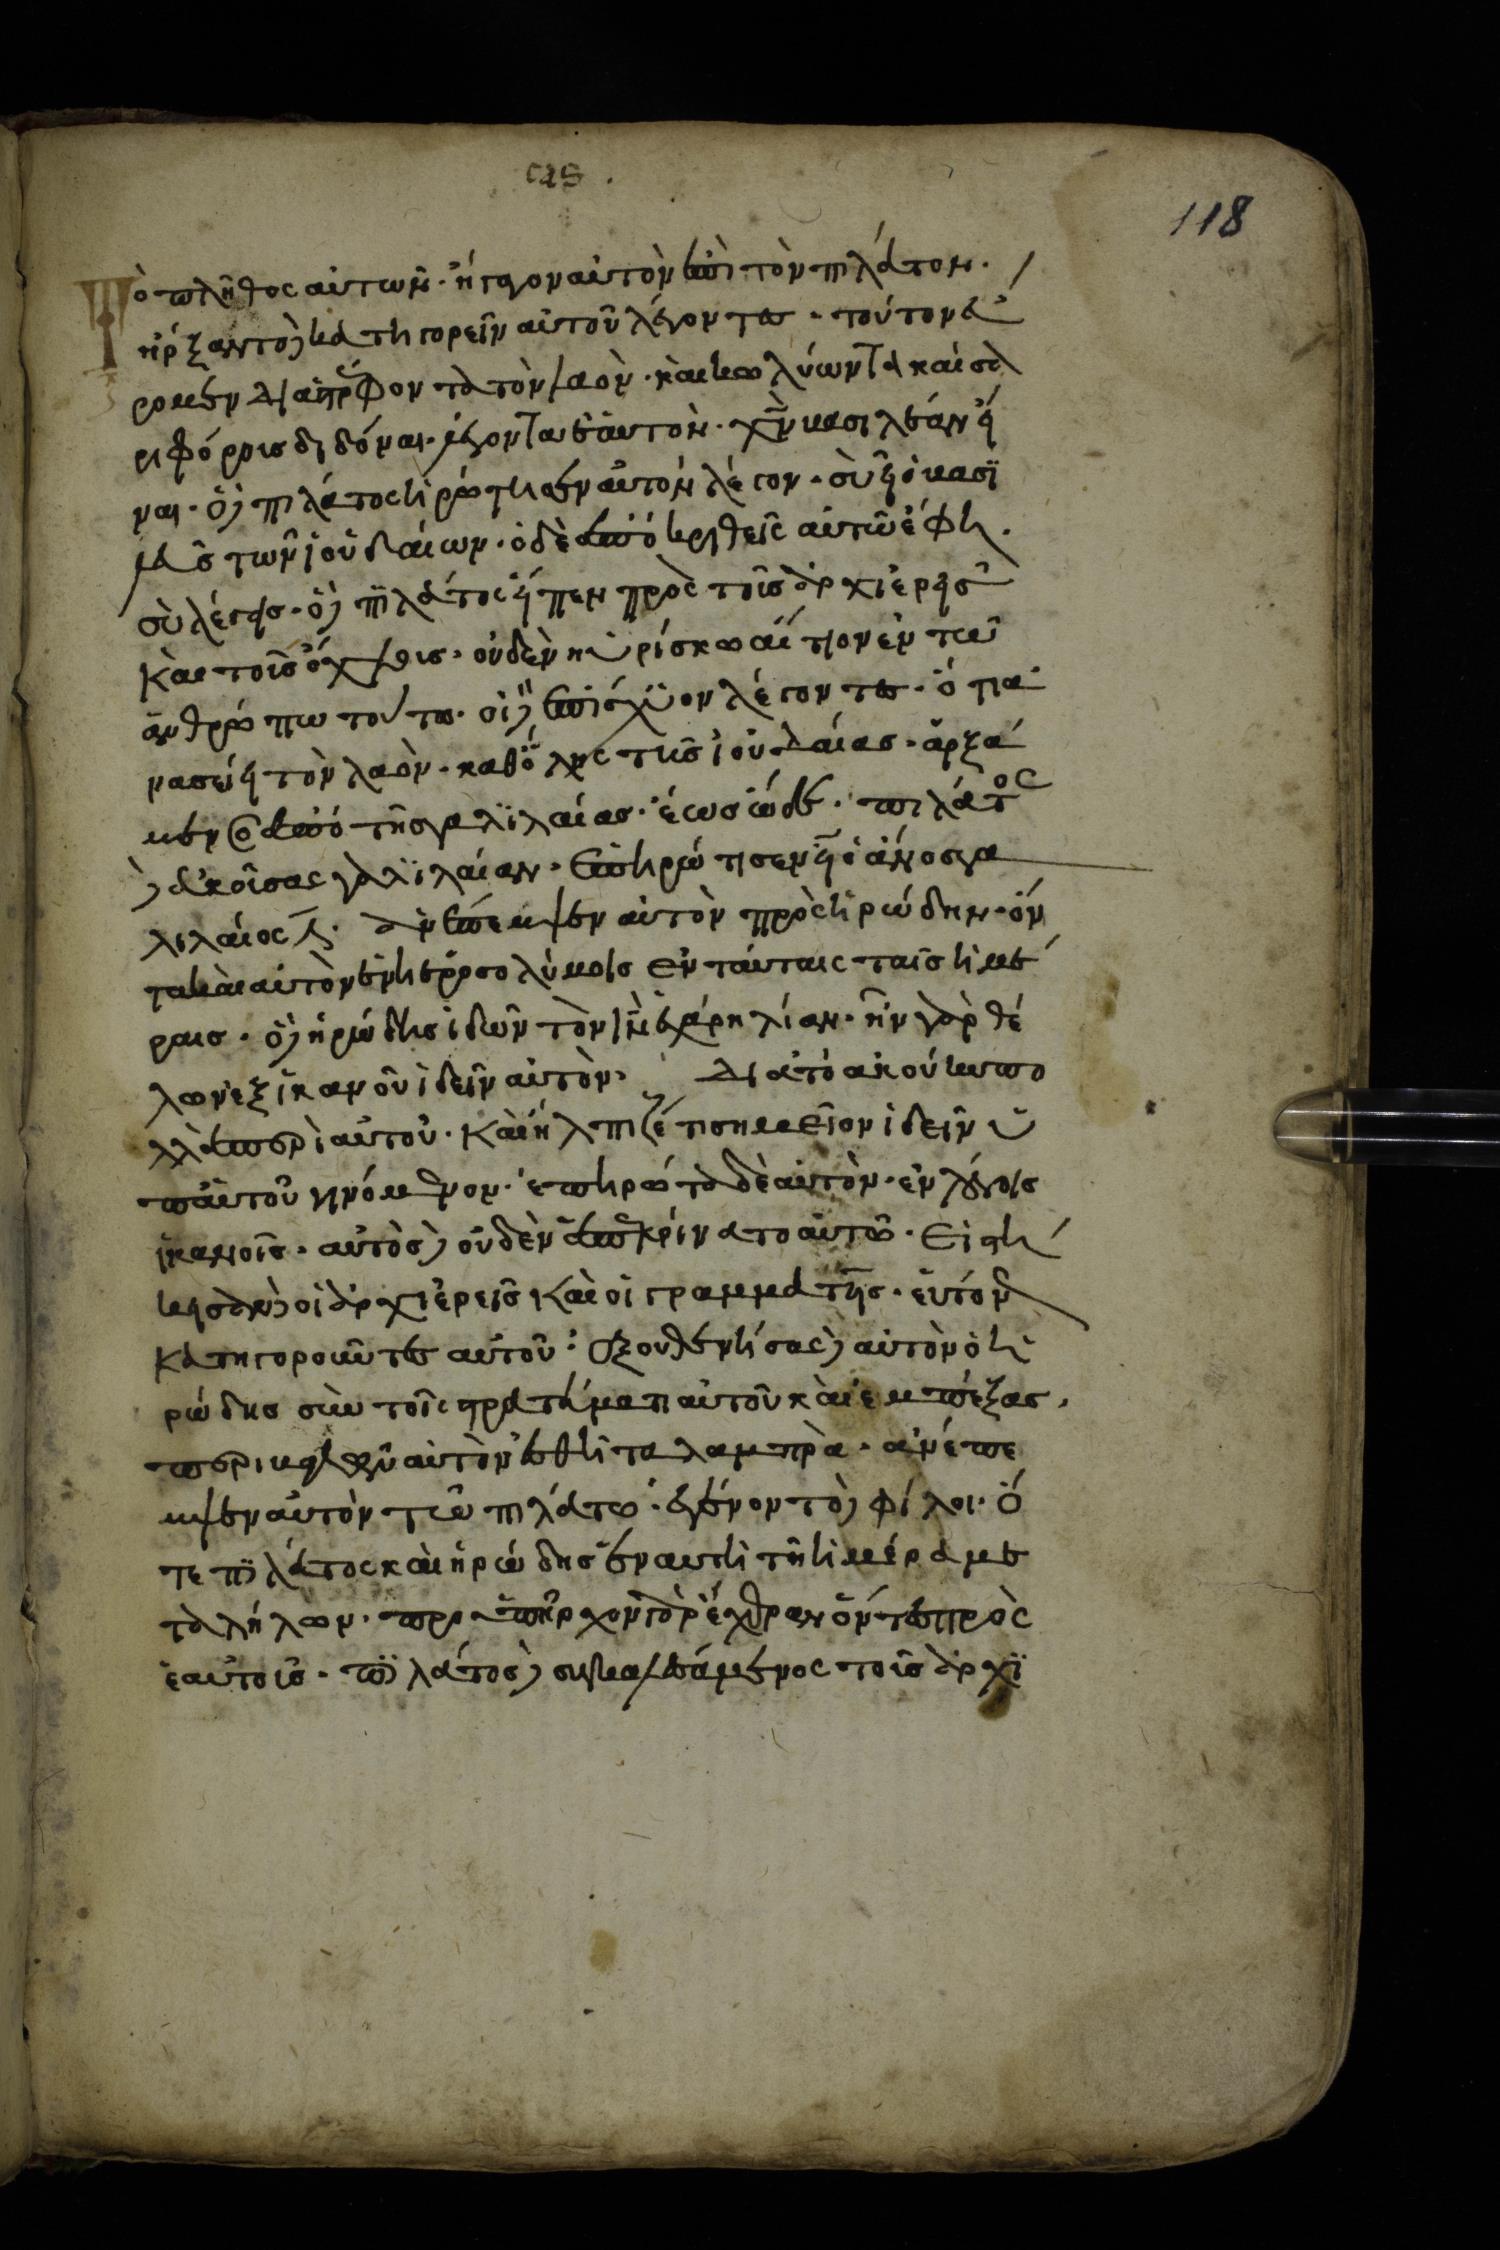 σις.
118
Τὸ πλῆθος αὐτῶν· ἤγαγον αὐτὸν ἐπὶ τὸν πιλάτον·
ἠρξαντο δὲ κατηγορεῖν αὐτοῦ λέγοντες· τοῦτον εὕ
ρομεν διαστρέφοντα τὸν λαὸν· καὶ κωλύωντα καίσα
ρι φόρρους διδόναι· λέγοντα ἑαυτὸν· χν βασιλέαν εἶ
ναι· ὁ δὲ πιλάτος ἠρώτησεν αὐτὸν λέγον· σὺ εἶ ὁ βασι
λεῦς τῶν ἰουδαίων· ὁ δὲ ἀποκριθεὶς αὐτῶ ἔφη·
σὺ λέγεις· ὁ δὲ πιλάτος εἶπεν πρὸς τοῖς ἀρχιερεῖς
καὶ τοῖς ὄχλοις· οὐδὲν ηὑρίσκω αἴτιον ἐν τῶ
ἀνθρώπω τούτω· οἱ δὲ ἐπίσχυον λέγοντες· ὅτι ἀ
νασείει τὸν λαὸν· καθ' ὅλης τῆς ἰουδαίας· ἀρξά
μενος ἀπὸ τῆς γαλιλαίας· ἕως ὧδε· πιλάτος
δὲ ἀκοῦσας γαλιλαίαν· ἐπηρώτησεν εἰ ὁ ἄνος γα
λιλαῖος ἐστιν· ἀνέπεμψεν αὐτὸν πρὸς ἡρώδην· ὄν
τα καὶ αὐτὸν ἐν ἱεροσολύμοις ἐν ταύταις ταῖς ἡμέ
ραις· ὁ δὲ ἡρώδης ἰδῶν τὸν ιν ἐχάρη λίαν· ἦν γὰρ θέ
λων ἐξ ἱκανοῦ ἰδεῖν αὐτὸν· διὰ τὸ ἀκούειν πο
λλὰ περὶ αὐτοῦ· καὶ ἤλπιζέ τι σημεῖον ἰδεῖν ὑ
π' αὐτοῦ γινόμενον· ἐπηρώτα δὲ αὐτὸν· ἐν λόγοις
ἱκανοῖς· αὐτὸς δὲ οὐδὲν ἀπεκρίνατο αὐτῶ· εἱστή
κησαν δὲ οἱ ἀρχιερεῖς καὶ οἱ γραμματῆς· εὐτόν
κατηγοροῦντες αὐτοῦ· ἐξουθενήσας δὲ αὐτὸν ὁ ἡ
ρώδης σὺν τοῖς στρατεύμασι αὐτοῦ καὶ ἐμπέξας·
περιβαλὼν αὐτὸν ἐσθῆτα λαμπρὰ· ἀνέπε
μψεν αὐτὸν τῶ πιλάτω· ἐγένοντο δὲ φίλοι· ὅ
τε πιλάτος καὶ ἡρώδης ἐν αυτῆ τῆ ἡμέρα με
τ' ἀλήλων· προυπῆρχον γὰρ ἔχθραν ὄντες πρὸς
ἑαυτοῖς· πιλάτος δὲ συγκαλεσάμενος τοῖς ἀρχι